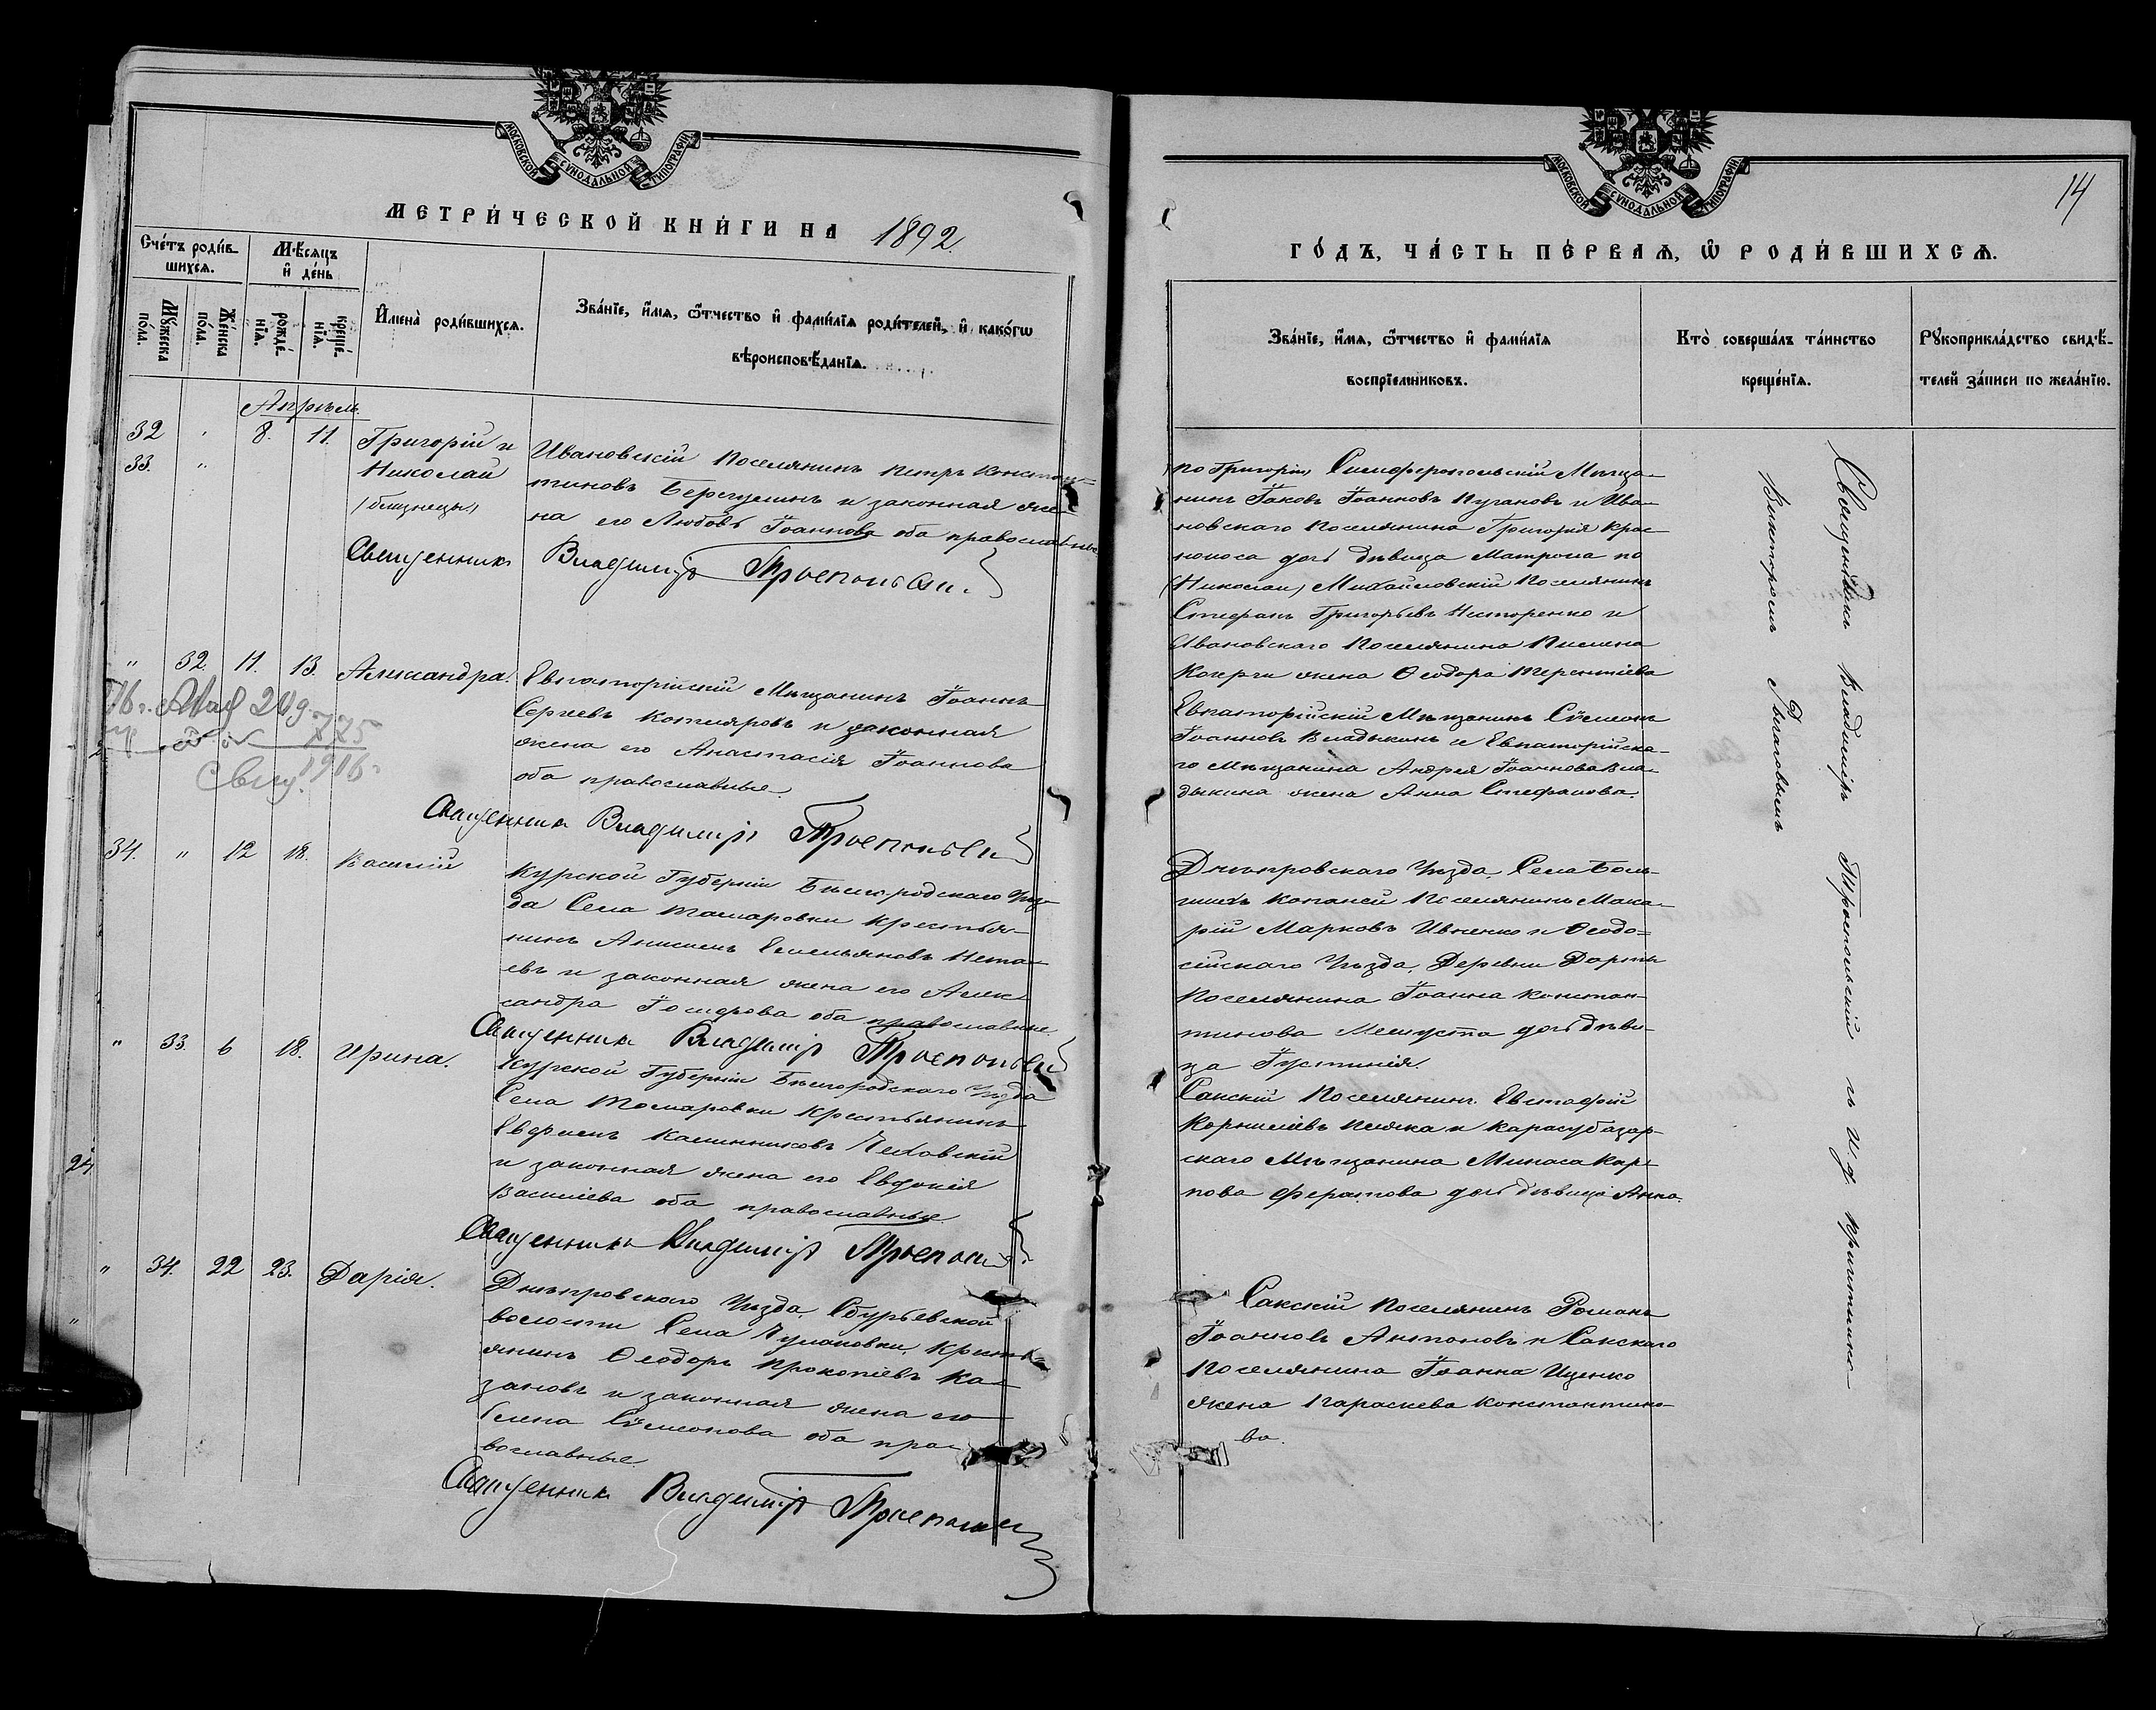 МОСКОВСКОЙ СѴНОДАЛЬНОЙ ТИПОГРАФІИ
МЕТРИ́ЧЕСКОЙ КНИ́ГИ НА 1892.
Сче́тъ роди́в-
шихсѧ.
Мѣ́сяцъ
и҆ де́нь
Мꙋ́жеска
по́ла.
Же́нска
по́ла.
рожде́-
нїѧ.
креще́-
нїѧ.
И҆мена̀ роди́вшихсѧ.
Зва́нїе, и҆́мѧ, ѻ҆́тчество и҆ фами́лїѧ роди́телей, и҆ како́гѡ
вѣроисповѣ́данїѧ.
Апрѣль.
32 " 8. 11. Григорій и
33. " Николай
(близнецы)
Ивановскій поселянинъ Петръ Констан-
тиновъ и законная же-
на его Любовь Іоаннова оба православные
Священникъ Владиміръ Тропольскій
" 32. 11. 13. Александра.
Евпаторійскій Мѣщанинъ Іоаннъ
Сергеевъ Котляровъ и законная
жена его Анастасія Іоаннова
оба православные.
Мая 24 д.
775
1916
Священникъ Владиміръ Тропольскій
34. " 12 18. Василій
Курской Губерніи Бѣлгородскаго Уѣз-
да Села Томаровки Крестья-
нинъ Анисимъ Емельяновъ
евъ и законная жена его Алек-
сандра оба православные
Священникъ Владиміръ Тропольскій
" 33. 6 18. Ирина.
Курской Губерніи Бѣлгородскаго Уѣзда
Села Томаровки Крестьянинъ
Калинниковъ Чеховскій
и законная жена его Евдокія
Василіева оба православные.
Священникъ Владиміръ Тропольскій
24
" 34. 22 23. Дарія.
Днѣпровскаго Уѣзда, Збурьевской
волости Села Чулаковки, Кресть-
янинъ Ѳеодоръ Прокопіевъ Ка-
зановъ и законная жена его
Елена Сѵмеонова оба пра-
вославные.
Священникъ Владиміръ Тропольскій
МОСКОВСКОЙ СѴНОДАЛЬНОЙ ТИПОГРАФІИ
14
ГО́ДЪ, ЧА́СТЬ ПЕ́РВАѦ, Ѽ РОДИ́ВШИХСѦ.
Зва́нїе, и҆́мѧ, ѻ҆́тчество и҆ фами́лїѧ
воспрїе́мниковъ.
Кто̀ соверша́лъ та́инство
креще́нїѧ.
Рꙋкоприкла́дство свидѣ́-
телей за́писи по жела́нїю.
(по Григорію) Симферопольскій Мѣща-
нинъ Іаковъ Іоанновъ Пугановъ и Ива-
новскаго поселянина Григорія Крас-
ноноса дочь дѣвица Матрона по
(Николаю) Михайловскій поселянинъ
Стефанъ Григорьевъ Несторенко и
Ивановскаго поселянина Пимена
Кочерги жена Ѳеодора Терентіева
Евпаторійскій Мѣщанинъ Сѵмеонъ
Іоанновъ Владыкинъ и Евпаторійска-
го Мѣщанина Андрея Іоаннова Вла-
дыкина жена Анна Стефанова.
Днѣпровскаго Уѣзда, Села Боль-
шихъ Копаней поселянинъ Мака-
рій Марковъ Ивченко и Ѳеодо-
сійскаго Уѣзда, Деревни Дорты
поселянина Іоанна Констан-
тинова дочь дѣви-
ца Іустинія.
Сакскій поселянинъ Евстафій
Корниліевъ и Карасубазар-
скаго Мѣщанина Минаса Кар-
пова Фератова дочь дѣвица Анна.
Сакскій поселянинъ Романъ
Іоанновъ Антоновъ и Сакскаго
поселянина Іоанна Иценко
жена Параскева Константино-
ва.
Священникъ Владиміръ Тропольскій съ И. д. причетника
Викторомъ